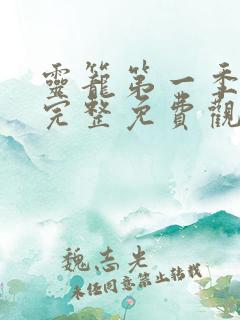 靈籠第一季
完整免費觀
魏志先
未经同意禁止转载